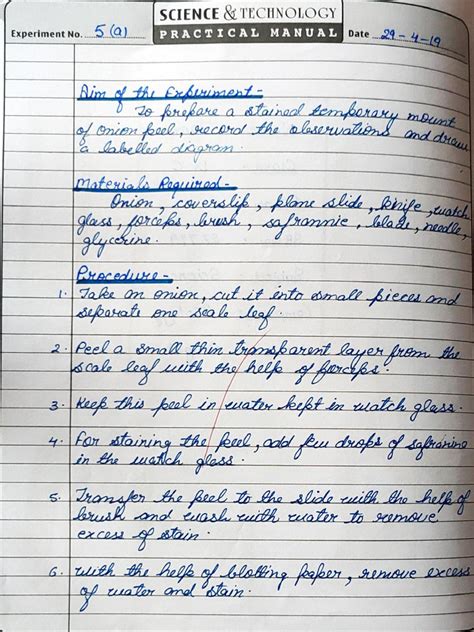 SCIENCE & TECHNOLOGY
Experiment No. 5 (a) PRACTICAL MANUAL Date 29-4-19
Aim of the Experiment -
To prepare a stained temporary mount
of onion peel, record the observations and draw
a labelled diagram.
Materials Required -
Onion, coverslip, plane slide, knife, watch
glass, forceps, brush, safrannie, blade, needle,
glycerine.
Procedure -
1. Take an onion, cut it into small pieces and
separate one scale leaf.
2. Peel a small thin transparent layer from the
scale leaf with the help of forceps.
3. Keep this peel in water kept in watch glass.
4. For staining the peel, add few drops of safranine
in the watch glass.
5. Transfer the peel to the slide with the help of
brush and wash with water to remove
excess of stain.
6. With the help of blotting paper, remove excess
of water and stain.